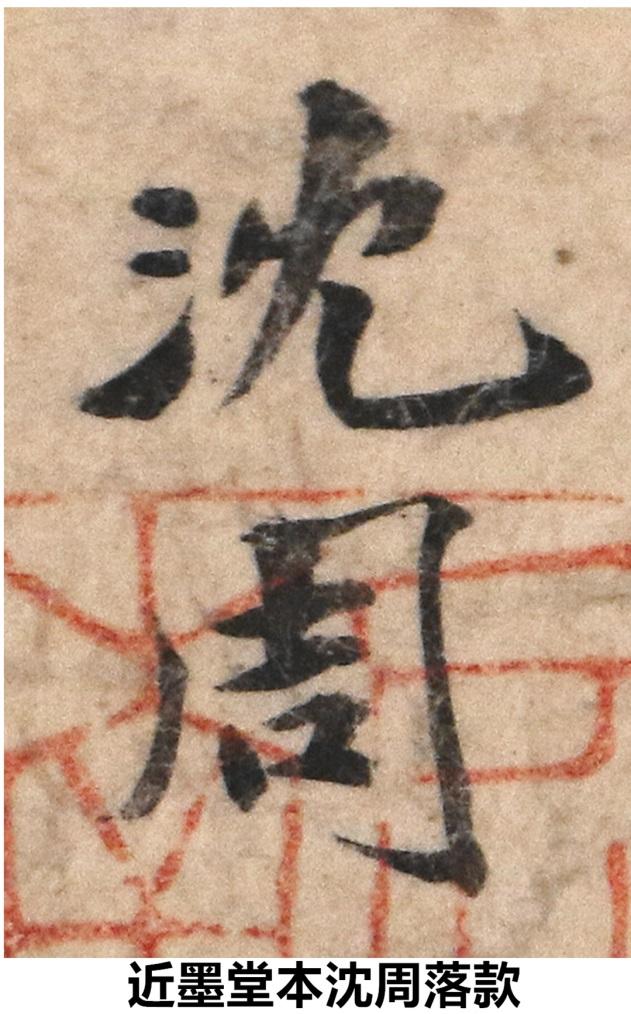 沈周
近墨堂本沈周落款